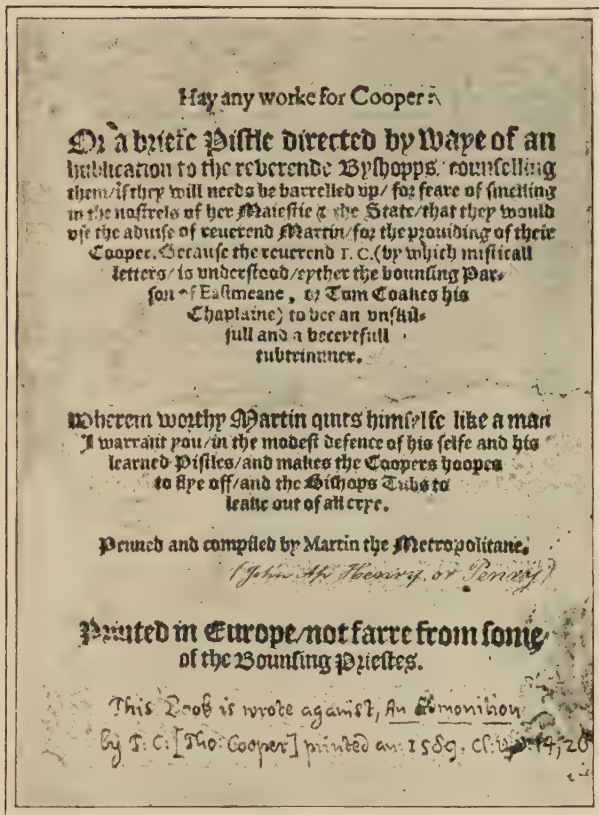 Hay any worke for Cooper:
Or a briefe Pistle directed by Waye of an
hublication to the reverende Byshopps, counselling
them/if they will needs be barrelled up/ for feare of smelling
in the nostrels of her Maiestie & the State/that they would
use the aduise of reuerend Martin/for the prouiding of their
Cooper. Because the reuerend T. C. (by which misticall
letters/ is vnderstood/eyther the bounsing Par-
son of Eastmeane, or Tom Coakes his
Chaplaine) to bee an vnskil-
full and a beceytfull
tubtrimmer.
Wherein worthy Martin quits himselfe like a man
I warrant you/in the modest defence of his selfe and his
learned Pistles/and makes the Coopers hoopes
to flye off/and the Bishops Tubs to
leake out of all crye.
Penned and compiled by Martin the Metropolitane.
(John Ap Henry, or Penry)
Printed in Europe/not farre from some
of the Bounsing Priestes.
This Book is wrote against, An Admonition
by T. C. [Tho: Cooper] printed an: 1589.